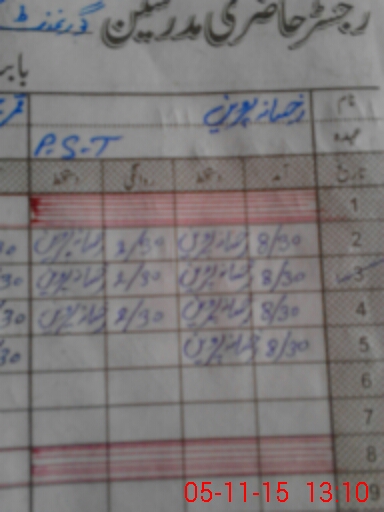 رجسٹر حاضری مدرسین گورنمنٹ
بابت
نام رخسانہ پروین
عہدہ P.S.T
تاریخ آمد دستخط روانگی دستخط
1
2 8/30 رخسانہ پروین 2/30 رخسانہ پروین 30
3 8/30 رخسانہ پروین 2/30 رخسانہ پروین 30
4 8/30 رخسانہ پروین 2/30 رخسانہ پروین 30
5 8/30 رخسانہ پروین 30
6
7
8
9
05-11-15 13:10